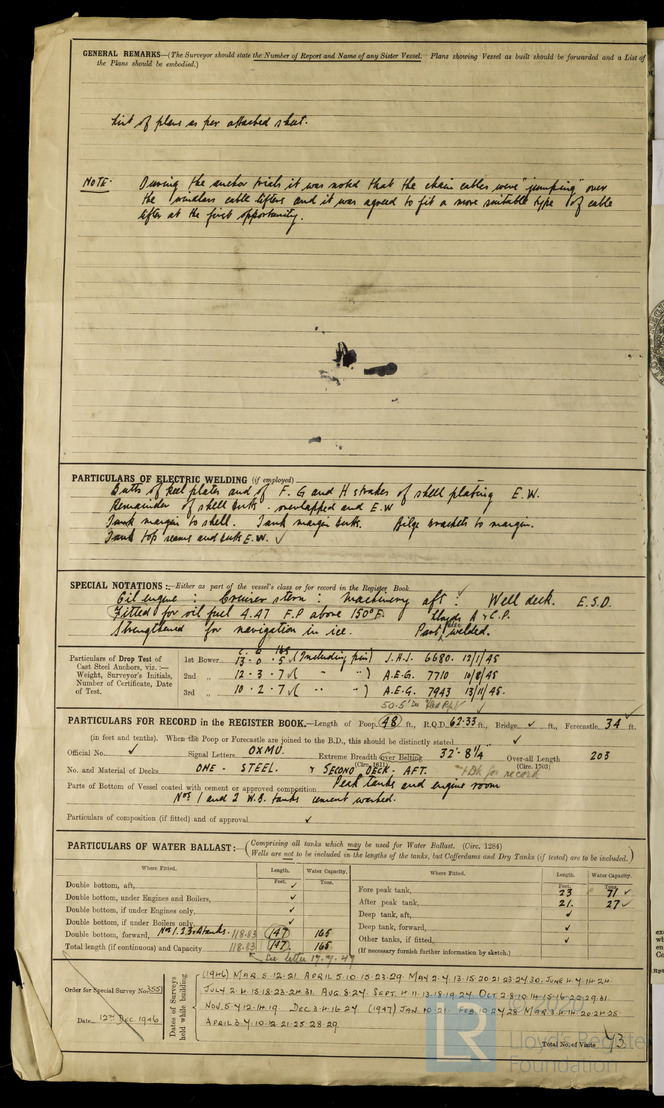 GENERAL REMARKS—(The Surveyor should state the Number of Report and Name of any Sister Vessel. Plans showing Vessel as built should be forwarded and a List of
the Plans should be embodied.)
List of plans as per attached sheet.
NOTE: During the anchor trials it was noted that the chain cables were "jumping" over
the windlass cable lifters and it was agreed to fit a more suitable type of cable
lifter at the first opportunity.
PARTICULARS OF ELECTRIC WELDING (if employed)
Butts of keel plates and of F. G and H strakes of shell plating E.W.
Remainder of shell butts overlapped and E.W
Tank margin to shell. Tank margin butts. Bilge brackets to margin.
Tank top seams and butts E.W. ✓
SPECIAL NOTATIONS:—Either as part of the vessel's class or for record in the Register Book
Oil engine : Cruiser stern : Machinery aft : Well deck. E.S.D.
Fitted for oil fuel 4.47 F.P above 150°F. Lloyds A & C.P.
Strengthened for navigation in ice. Part welded.
Particulars of Drop Test of
Cast Steel Anchors, viz. :—
Weight, Surveyor's Initials,
Number of Certificate, Date
of Test.
1st Bower 13 · 0 · 5 ✓ (Including pin) J.A.J. 6680. 12/1/45
2nd „ 12 · 3 · 7 ✓ ( „ „ ) A.E.G. 7710 10/8/45
3rd „ 10 · 2 · 7 ✓ ( „ „ ) A.E.G. 7943 13/11/45.
PARTICULARS FOR RECORD in the REGISTER BOOK.—Length of Poop 48 ft., R.Q.D. 62·33 ft., Bridge ✓ ft., Forecastle 34 ft.
(in feet and tenths). When the Poop or Forecastle are joined to the B.D., this should be distinctly stated ✓
Official No. ✓ Signal Letters OXMU. Extreme Breadth over Belting (Circ. 1611) 32'- 8¼" Over-all Length (Circ. 1703) 203
No. and Material of Decks ONE - STEEL. & SECOND DECK. AFT. 1 Dk for record
Parts of Bottom of Vessel coated with cement or approved composition Peak tanks and engine room
Nos 1 and 2 W.B. tanks cement washed.
Particulars of composition (if fitted) and of approval ✓
PARTICULARS OF WATER BALLAST:—(Comprising all tanks which may be used for Water Ballast. (Circ. 1284)
Wells are not to be included in the lengths of the tanks, but Cofferdams and Dry Tanks (if tested) are to be included.)
Where Fitted. Length. Water Capacity. Where Fitted. Length. Water Capacity.
Feet. Tons. Feet. Tons.
Double bottom, aft, ✓ Fore peak tank, 23 71 ✓
Double bottom, under Engines and Boilers, ✓ After peak tank, 21. 27 ✓
Double bottom, if under Engines only, ✓ Deep tank, aft, ✓
Double bottom, if under Boilers only, ✓ Deep tank, forward, ✓
Double bottom, forward, Nos 1.2.3.4 tanks. 118·83 147 165 Other tanks, if fitted, ✓
Total length (if continuous) and Capacity 118·83 147. 165 (If necessary furnish further information by sketch.)
Order for Special Survey No. 3551
Date 12TH DEC 1946
Dates of Surveys
held while building
(1946) MAR. 5·12·21. APRIL 5·10·15·23·29. MAY 2·7·13·15·20·21·23·24·30. JUNE 4·7·14·24.
JULY 2·11·15·18·23·24·31. AUG. 8·27. SEPT. 4·11·13·18·19·24. OCT. 2·8·10·14·15·16·20·29·31.
NOV. 5·7·12·14·19 DEC. 3·4·16·27 (1947) JAN. 10·21. FEB. 10·27·28. MAR. 3·4·14·20·24·25
APRIL 3·7·10·12·21·25·28·29.
Total No. of Visits 73
LR
Lloyd's Register
Foundation